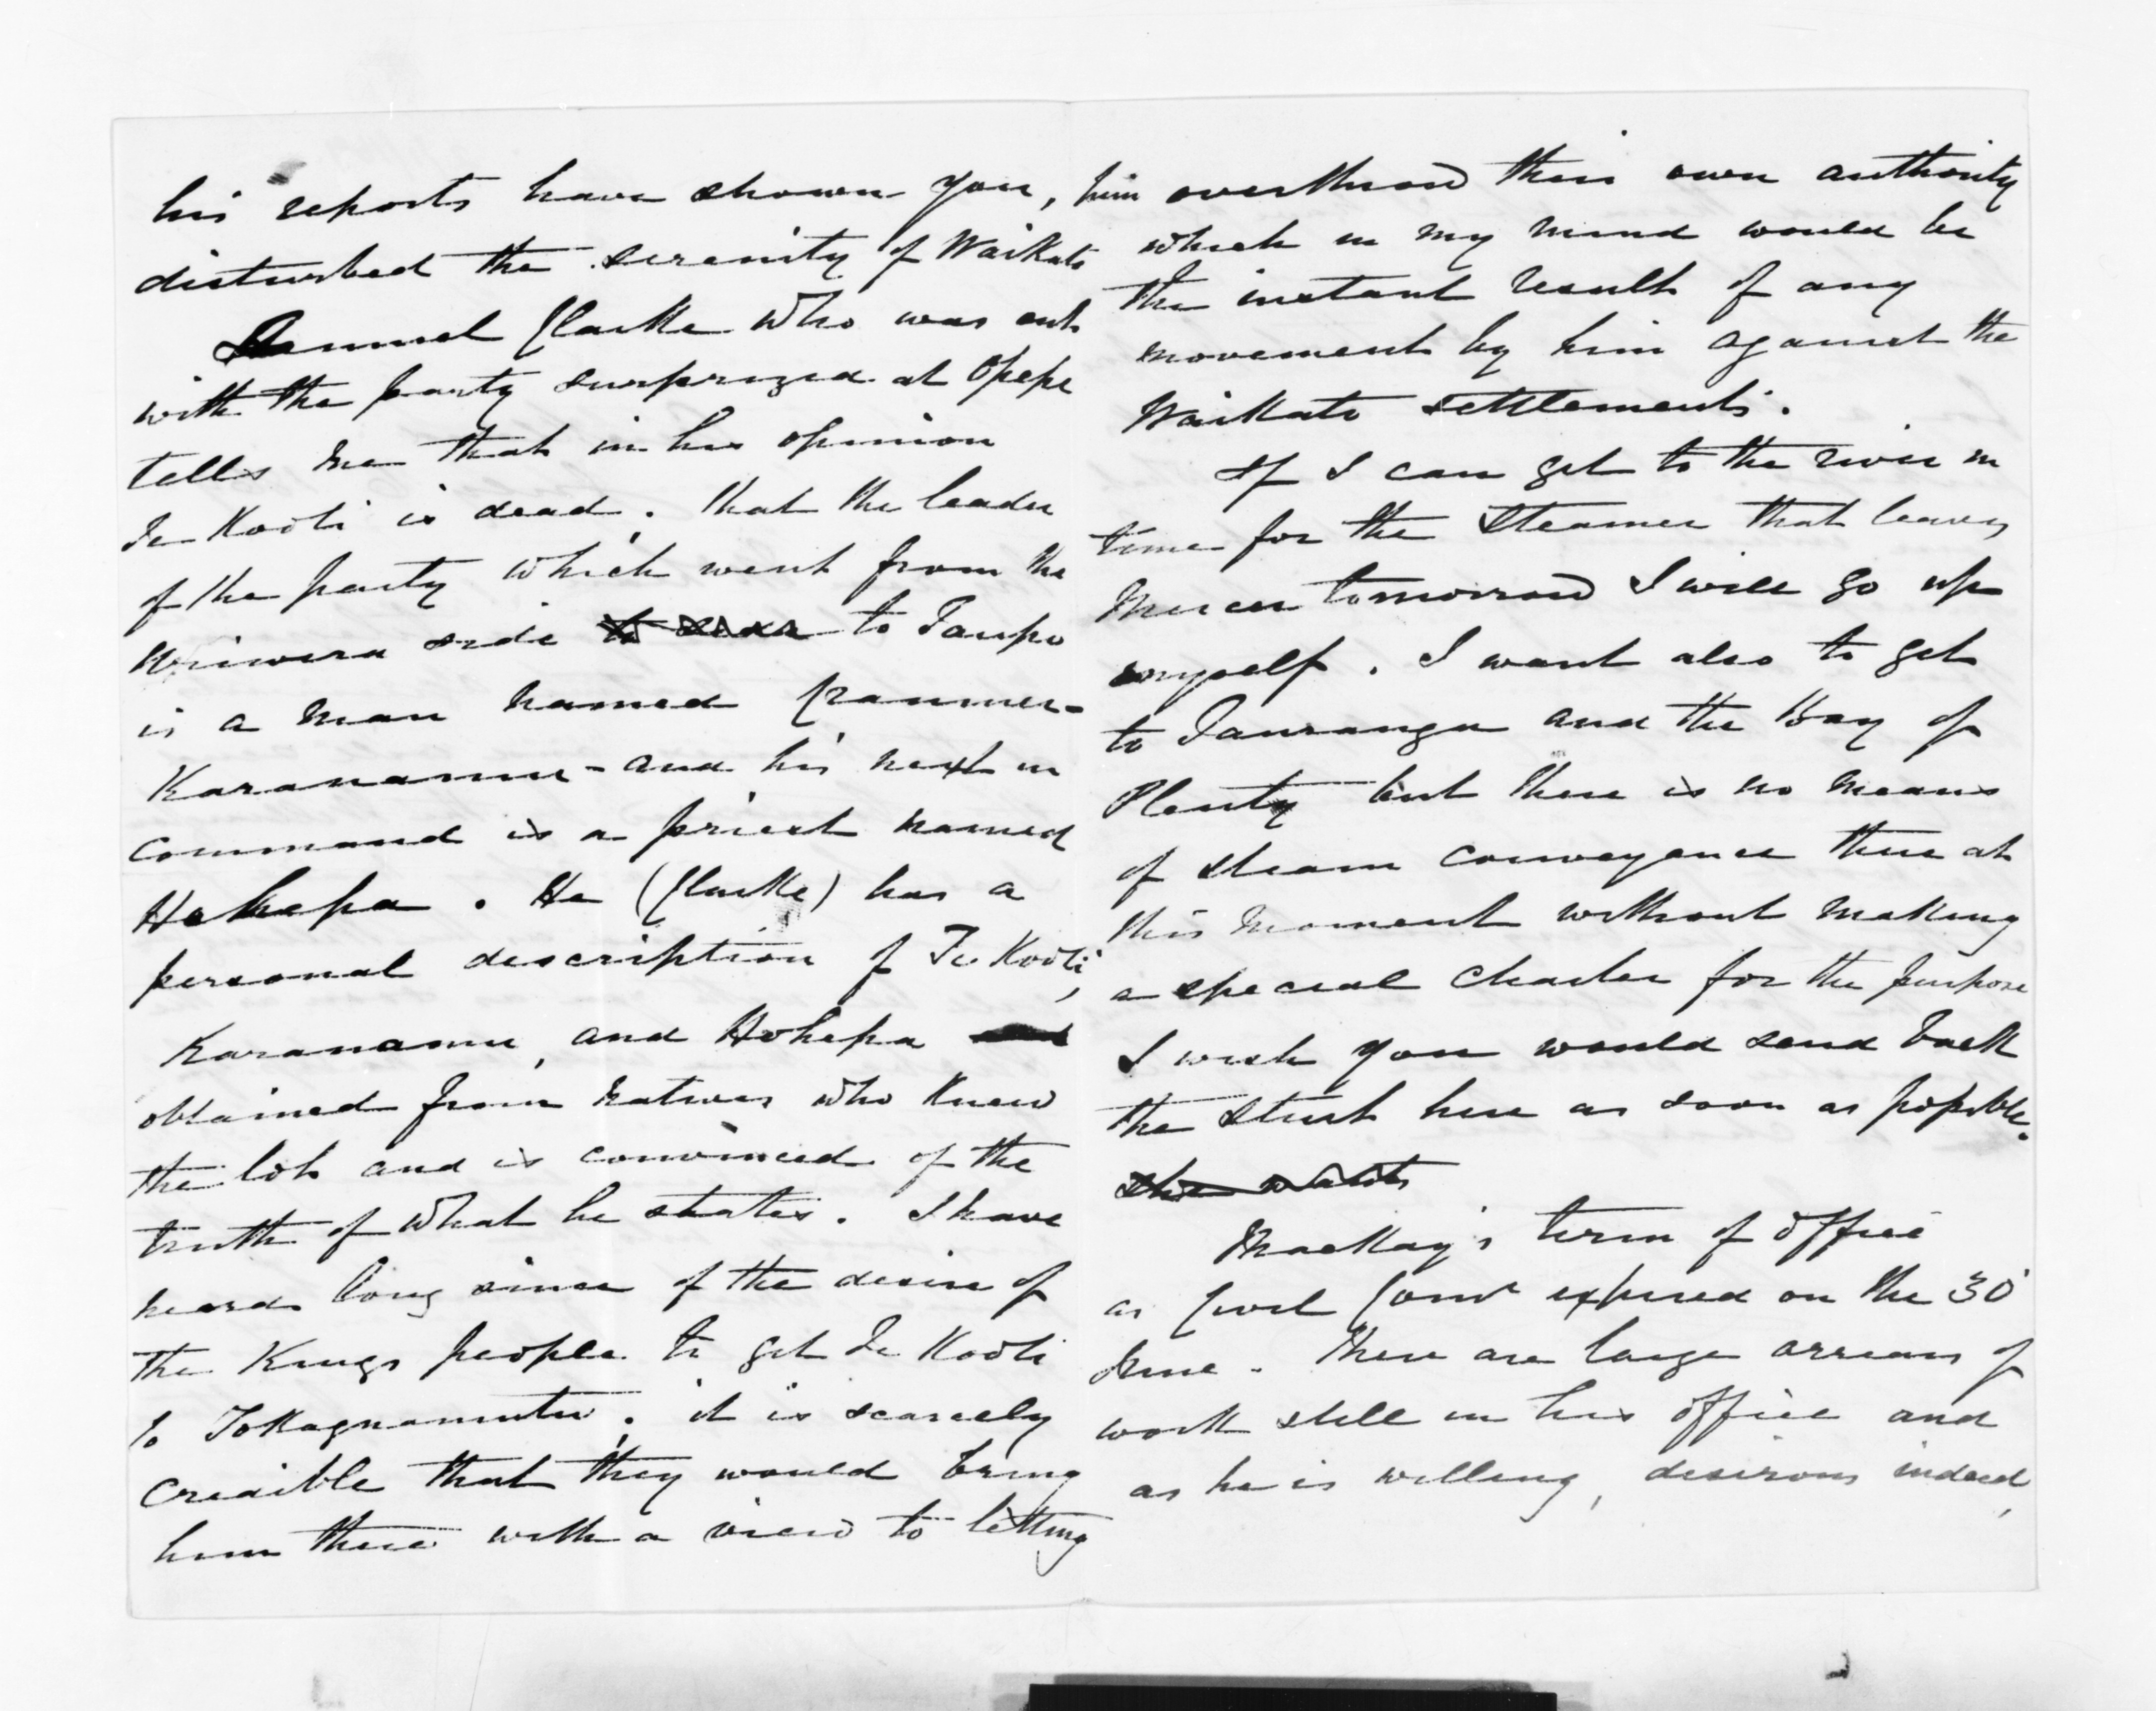 his reports have shown you,
disturbed the serenity of Waikato
Samuel Clarke who was out
with the party surprized at Opepe
tells me that in his opinion
Te Kooti is dead. that the leader
of the party which went from the
Uriwera side to Taupo
is a man named
Karanamu - and his next in
command is a priest named
Hohepa. He (Clarke) has a
personal description of Te Kooti,
Karanamu, and Hohepa
obtained from natives who knew
the lot and is convinced of the
truth of what he states. I have
heard long since of the desire of
the Kings people to get Te Kooti
to Tokagnamutu. it is scarcely
credible that they would bring
him there with a view to letting
him overthrow their own authority
which in my mind would be
the instant result of any
movement by him against the
Waikato settlements.
If I can get to the river in
time for the Steamer that leaves
Mercer tomorrow I will go up
myself. I want also to get
to Tauranga and the Bay of
Plenty but there is no means
of steam conveyance there at
this moment without making
a special charter for the purpose
I wish you would send back
the Sturt here as soon as possible.
she waits
Mackay's term of office
as Civil Comr expired on the 30
June. There are large arrears of
work still in his office and
as he is willing, desirous indeed,